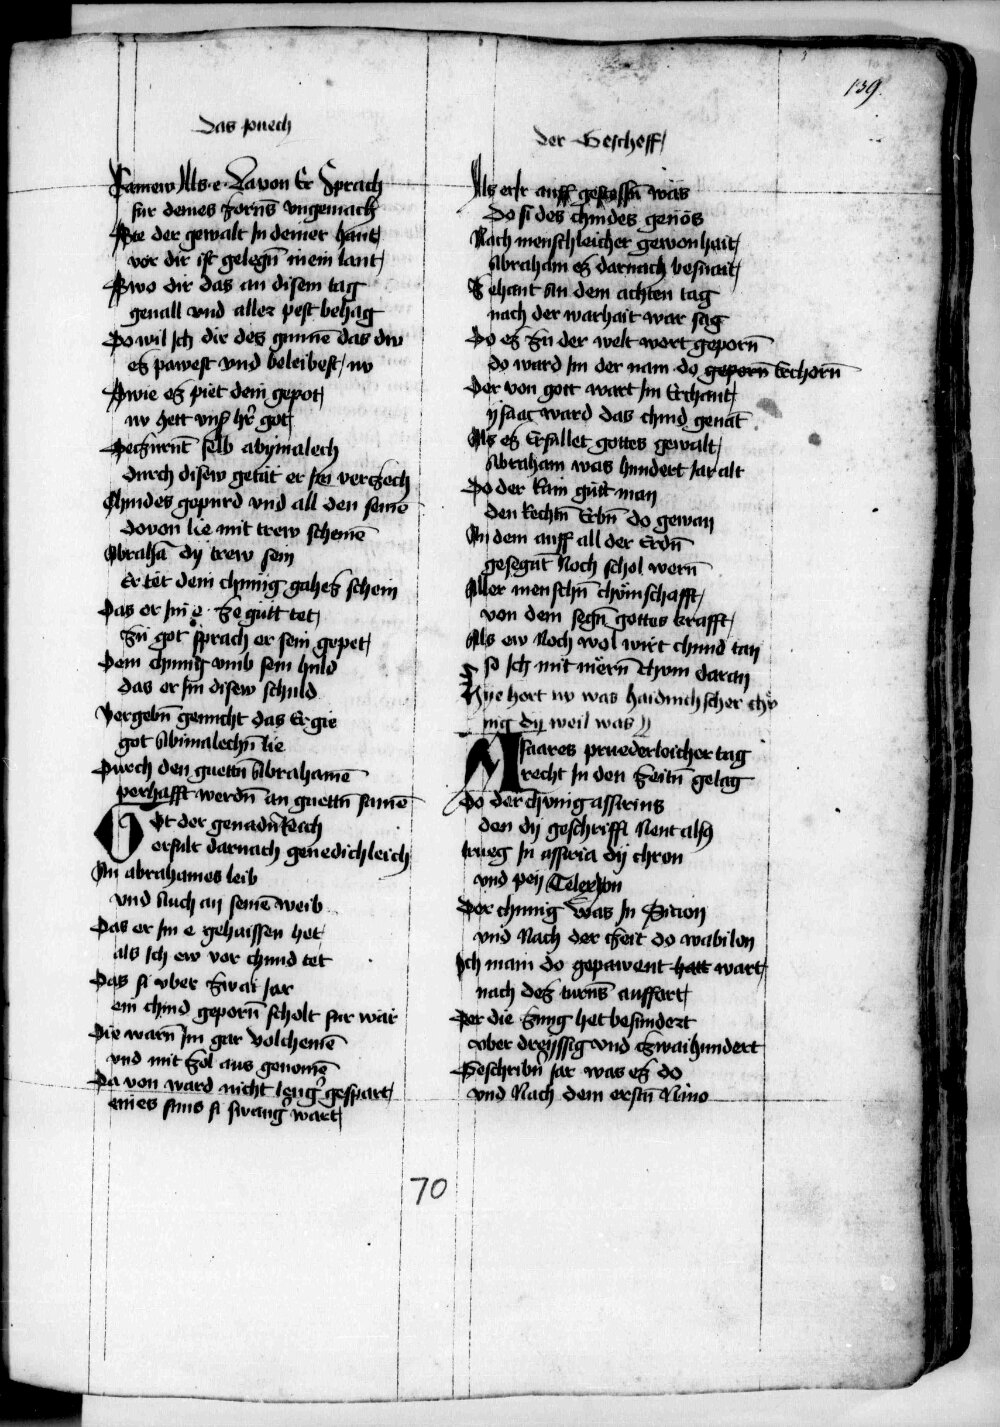 139.
Das puech
Der Gescheff
Samew Als e Davon Er Sprach
für deines zorns vngemach
Ste der gewalt In deiner hant
vor dir ist gelegn mein lant
Swo dir das an disem tag
geuall vnd aller pest behag
So wil Ich dir des gunnē das dw
es pawest vnd beleibest nv
Swie es piet dein gepot
nv hett vnser hr got
selb abymalech
durch disew getat er Im verczech
Chindes gepurd vnd all den seinē
dovon lie mit trew scheinē
Abrahā dy trew sein
Er tet dem chunig gahes schein
Das er Im e ze gutt tet
Zu got sprach er sein gepet
Dem chunig vmb sein huld
das er Im disew schuld
Vergebn gerucht das Ergie
got Abimalechn lie
Durch den guettn Abrahamē
perhafft werdn an guettn samē
Got der genadn Reich
erfult darnach genedichleich
An abrahames leib
vnd Auch an seinē weib
Das er Im e gehaissen het
als Ich ew vor chund tet
Das si vber zwai Jar
ein chind geporn scholt fur war
Die warn Im gar volchemē
vnd mit zal aus genomē
Da von ward nicht leng gespart
eines suns si swang wart
Als er Ir auff gesessn was
Do si des chindes genos
Nach menschleicher gewonhait
Abraham es darnach besnait
Zehant An dem achten tag
nach der warhait war sag
Do es zu der welt wort geporn
do ward Im der nam do geporn Erchorn
Der von gott wart Im Erchant
ysaac ward das chind genāt
Als es Erfullet gottes gewalt
Abraham was hundert Jar alt
Do der Rain gutt man
den Rechtn Erbn do gewan
An dem auff all der Erdn
gesegnt Noch schol wern
Aller menschn chunschafft
von dem segn gottes krafft
Als ew Noch wol wirt chund tan
so Ich mit mern chum daran
Hye hort nv was haidnischer chv
nig dy weil was
Isaares pruederleicher tag
recht In den zeitn gelag
Do der chunig assirius
den dy geschrifft Nent alsus
trueg In assiria dy chron
vnd pey
Der chunig was In Sicion
vnd Nach der zeit do wabilon
Ich main do gepawent hatt wart
nach des turns auffart
Der die zung het besundert
vber dreyssig vnd zwaihundert
Geschribn Jar was es do
vnd Nach dem erstn Nino
70